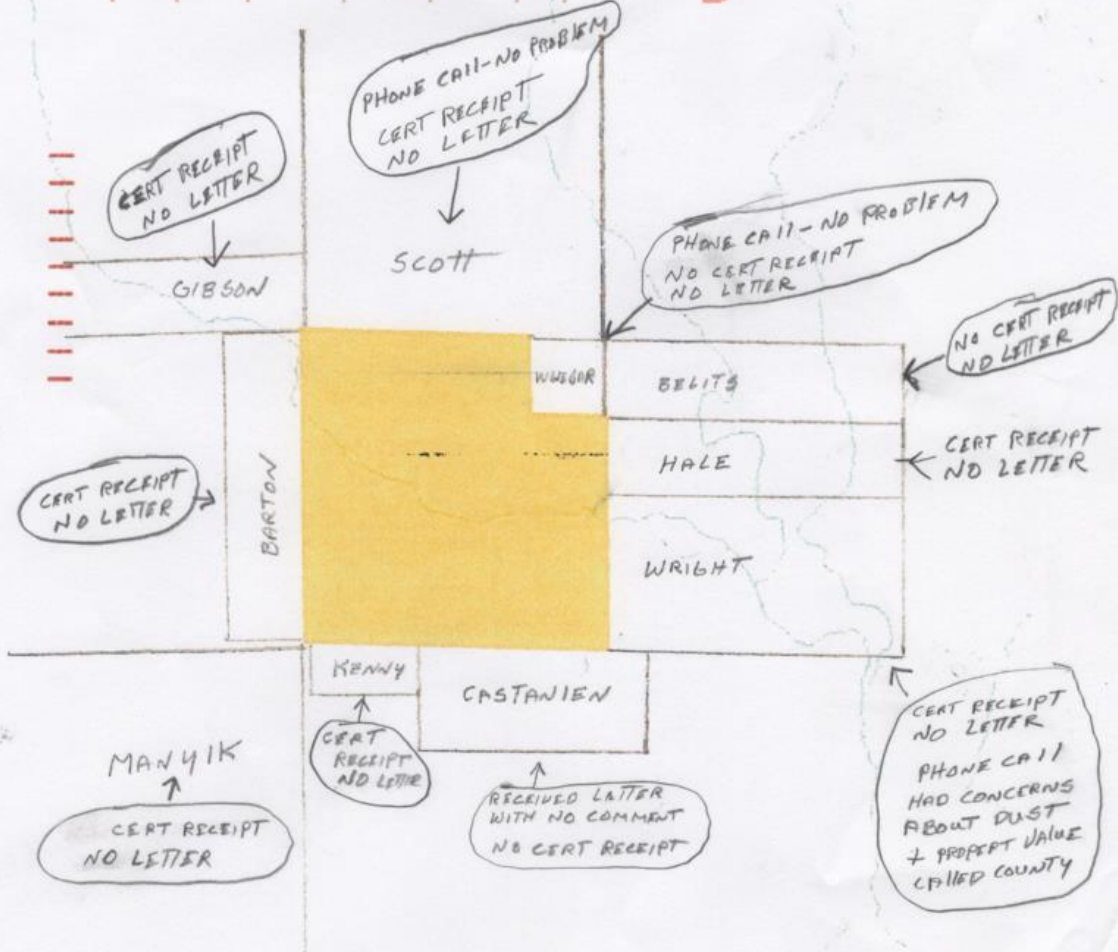 PHONE CALL-NO PROBLEM
CERT RECEIPT
NO LETTER
CERT RECEIPT
NO LETTER
SCOTT
GIBSON
PHONE CALL-NO PROBLEM
NO CERT RECEIPT
NO LETTER
NO CERT RECEIPT
NO LETTER
BELITS
HALE
CERT RECEIPT
NO LETTER
CERT RECEIPT
NO LETTER
BARTON
WRIGHT
KENNY
CASTANIEN
MANYIK
CERT RECEIPT
NO LETTER
CERT
RECEIPT
NO LETTER
RECEIVED LETTER
WITH NO COMMENT
NO CERT RECEIPT
CERT RECEIPT
NO LETTER
PHONE CALL
HAD CONCERNS
ABOUT DUST
+ PROPERT VALUE
CALLED COUNTY